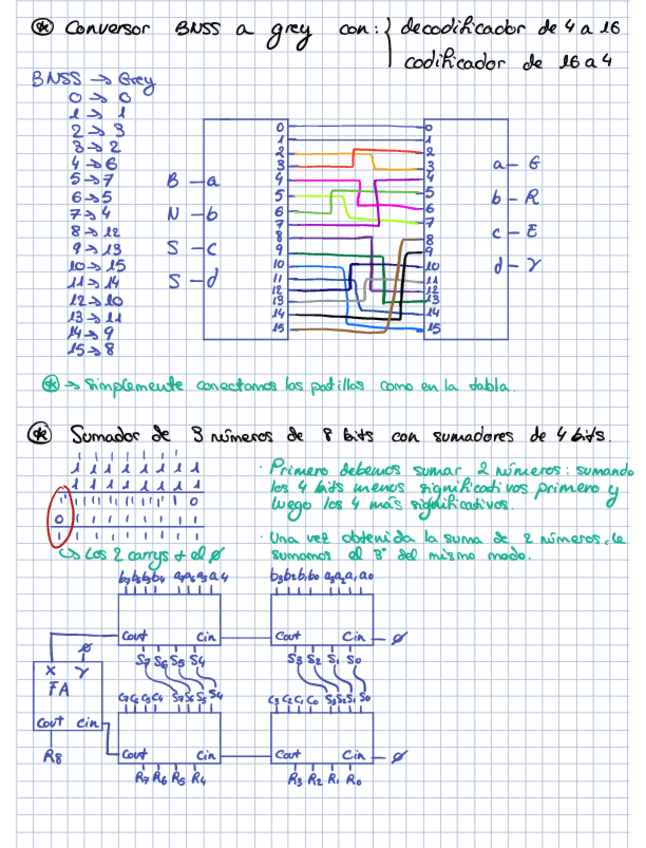 ⊛ Conversor BNSS a grey con: { decodificador de 4 a 16
codificador de 16 a 4
BNSS → Grey
0 → 0
1 → 1
2 → 3
3 → 2
4 → 6
5 → 7
6 → 5
7 → 4
8 → 12
9 → 13
10 → 15
11 → 14
12 → 10
13 → 11
14 → 9
15 → 8
B - a
N - b
S - c
S - d
0
1
2
3
4
5
6
7
8
9
10
11
12
13
14
15
0
1
2
3
4
5
6
7
8
9
10
11
12
13
14
15
a - G
b - R
c - E
d - Y
⊛ → Simplemente conectamos las patillas como en la tabla.
⊛ Sumador de 3 números de 8 bits con sumadores de 4 bits.
1 1 1 1 1 1 1
1 1 1 1 1 1 1 1
1 1 1 1 1 1 1 1
1 1 1 1 1 1 1 1 0
0 1 1 1 1 1 1 1 1
↪ Los 2 carrys + el ∅
· Primero debemos sumar 2 números: sumando
los 4 bits menos significativos primero y
luego los 4 más significativos.
· Una vez obtenida la suma de 2 números, le
sumamos el 3º del mismo modo.
b7b6b5b4 a7a6a5a4
b3b2b1b0 a3a2a1a0
Cout Cin
Cout Cin - ∅
S7 S6 S5 S4
S3 S2 S1 S0
∅
X Y
FA
Cout Cin
R8
C7C6C5C4 S7S6S5S4
C3C2C1C0 S3S2S1S0
Cout Cin
Cout Cin - ∅
R7 R6 R5 R4
R3 R2 R1 R0